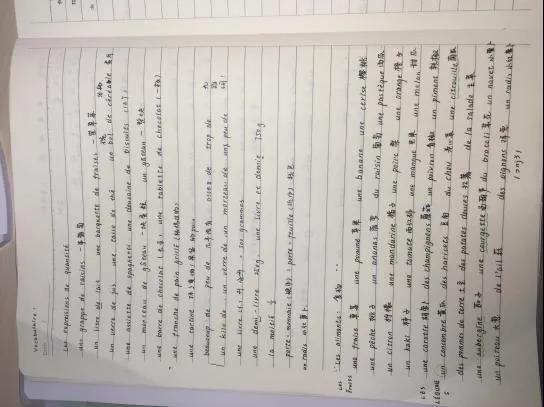 Vocabulaire :
Les expressions de quantité
une grappe de raisins 一串葡萄
un litre de lait une barquette de fraises 一盒草莓
un verre de jus une tasse de thé un bol de céréale
une assiette de spaghetti une douzaine de biscuits
un morceau de gâteau 一块蛋糕 un gâteau 一整块
une barre de chocolat une tablette de chocolat
une tranche de pain grillé
une tartine
beaucoup de peu de assez de trop de
un kilo de un verre de un morceau de un peu de
une livre = 500 grammes
une demi-livre 250g une livre et demie 750g
la moitié ½
porte-monnaie porte-feuille 钱包
un radis
Les aliments : 食物
Les fruits
une fraise 草莓 une pomme 苹果 une banane une cerise 樱桃
une pêche 桃子 un ananas 菠萝 du raisin 葡萄 une pastèque 西瓜
un citron 柠檬 une mandarine 橘子 une poire 梨 une orange 橙子
un kaki 柿子 une tomate 西红柿 une mangue 芒果 une melon 甜瓜
Les légumes
une carotte 胡萝卜 des champignons 蘑菇 un poivron 青椒 un piment 辣椒
un concombre 黄瓜 des haricots 豆角 du chou 卷心菜 une citrouille 南瓜
des pommes de terre 土豆 des patates douces 红薯 de la salade 生菜
une aubergine 茄子 une courgette 西葫芦 du brocoli un navet
un poireau 大葱 de l'ail 蒜 des oignons 洋葱 un radis